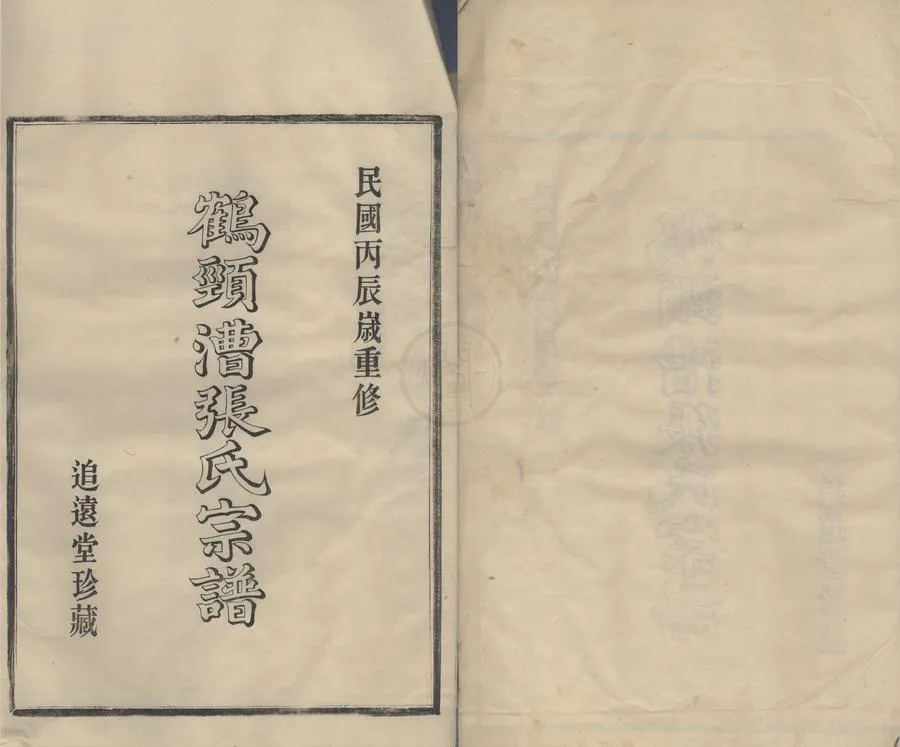 民國丙辰嵗重修
鶴頸漕張氏宗譜
追遠堂珍藏